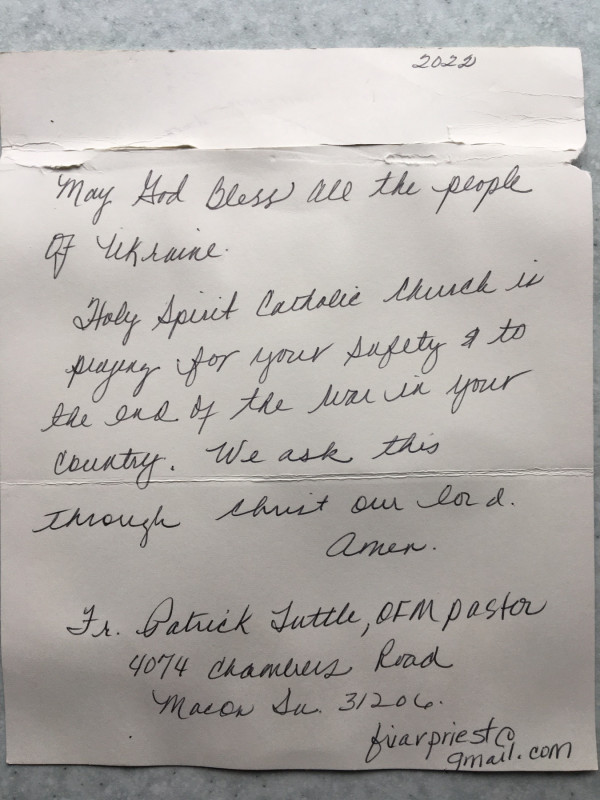 2022
May God Bless all the people
Of Ukraine.
Holy Spirit Catholic Church is
praying for your safety & to
the end of the war in your
country. We ask this
through Christ our lord.
Amen.
Fr. Patrick Tuttle, OFM pastor
4074 Chambers Road
Macon Ga. 31206.
friarpriest@
gmail.com